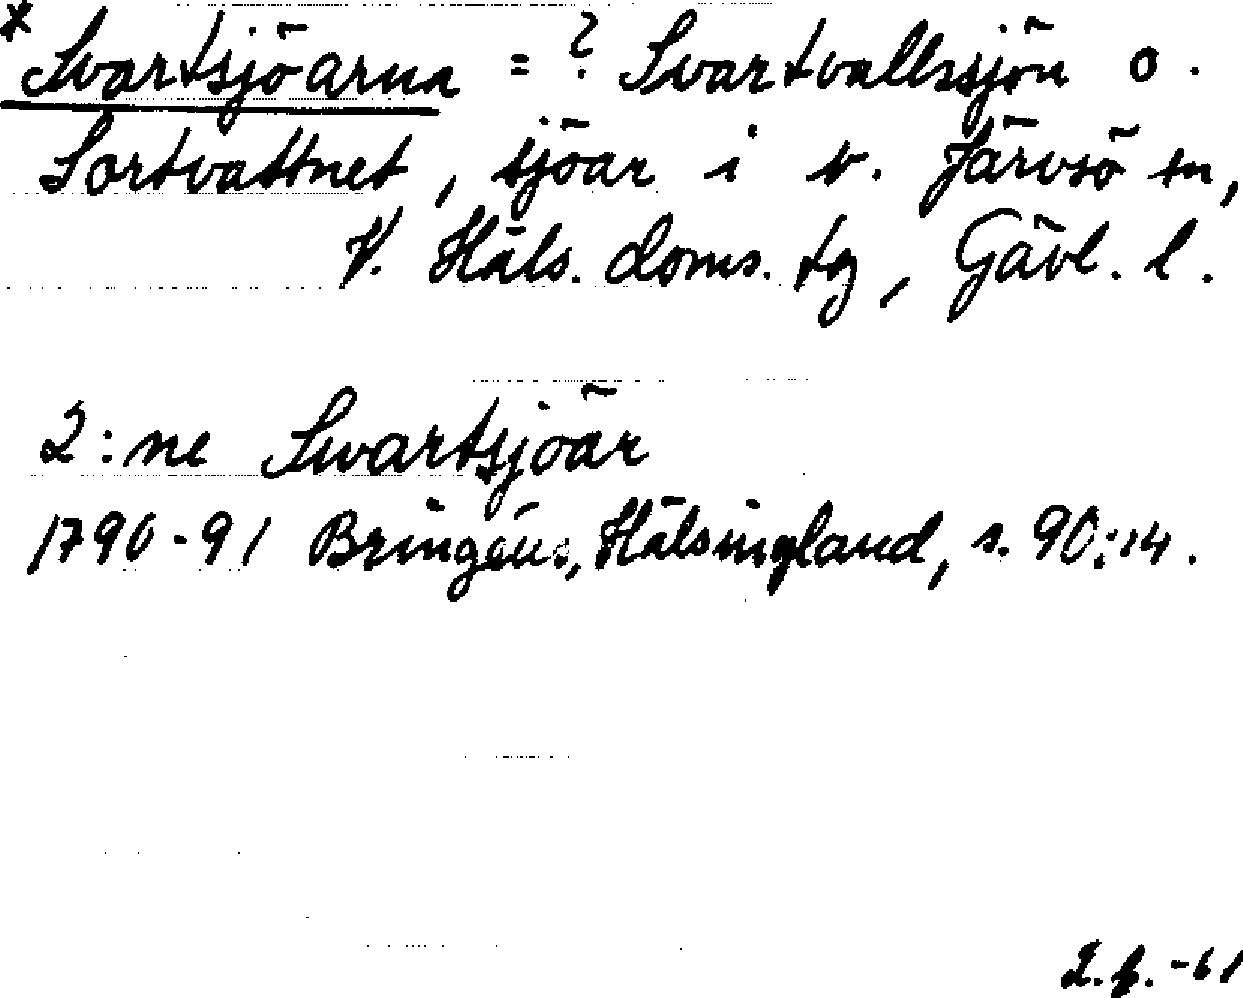 * Svartsjöarna = ? Svartvallssjön o.
Sortvattnet, sjöar i v. Järvsö sn,
V. Häls. doms. tg, Gävl. l.
2:ne Swartsjöar
1790-91 Bringéus, Hälsingland, s. 90:14.
-61